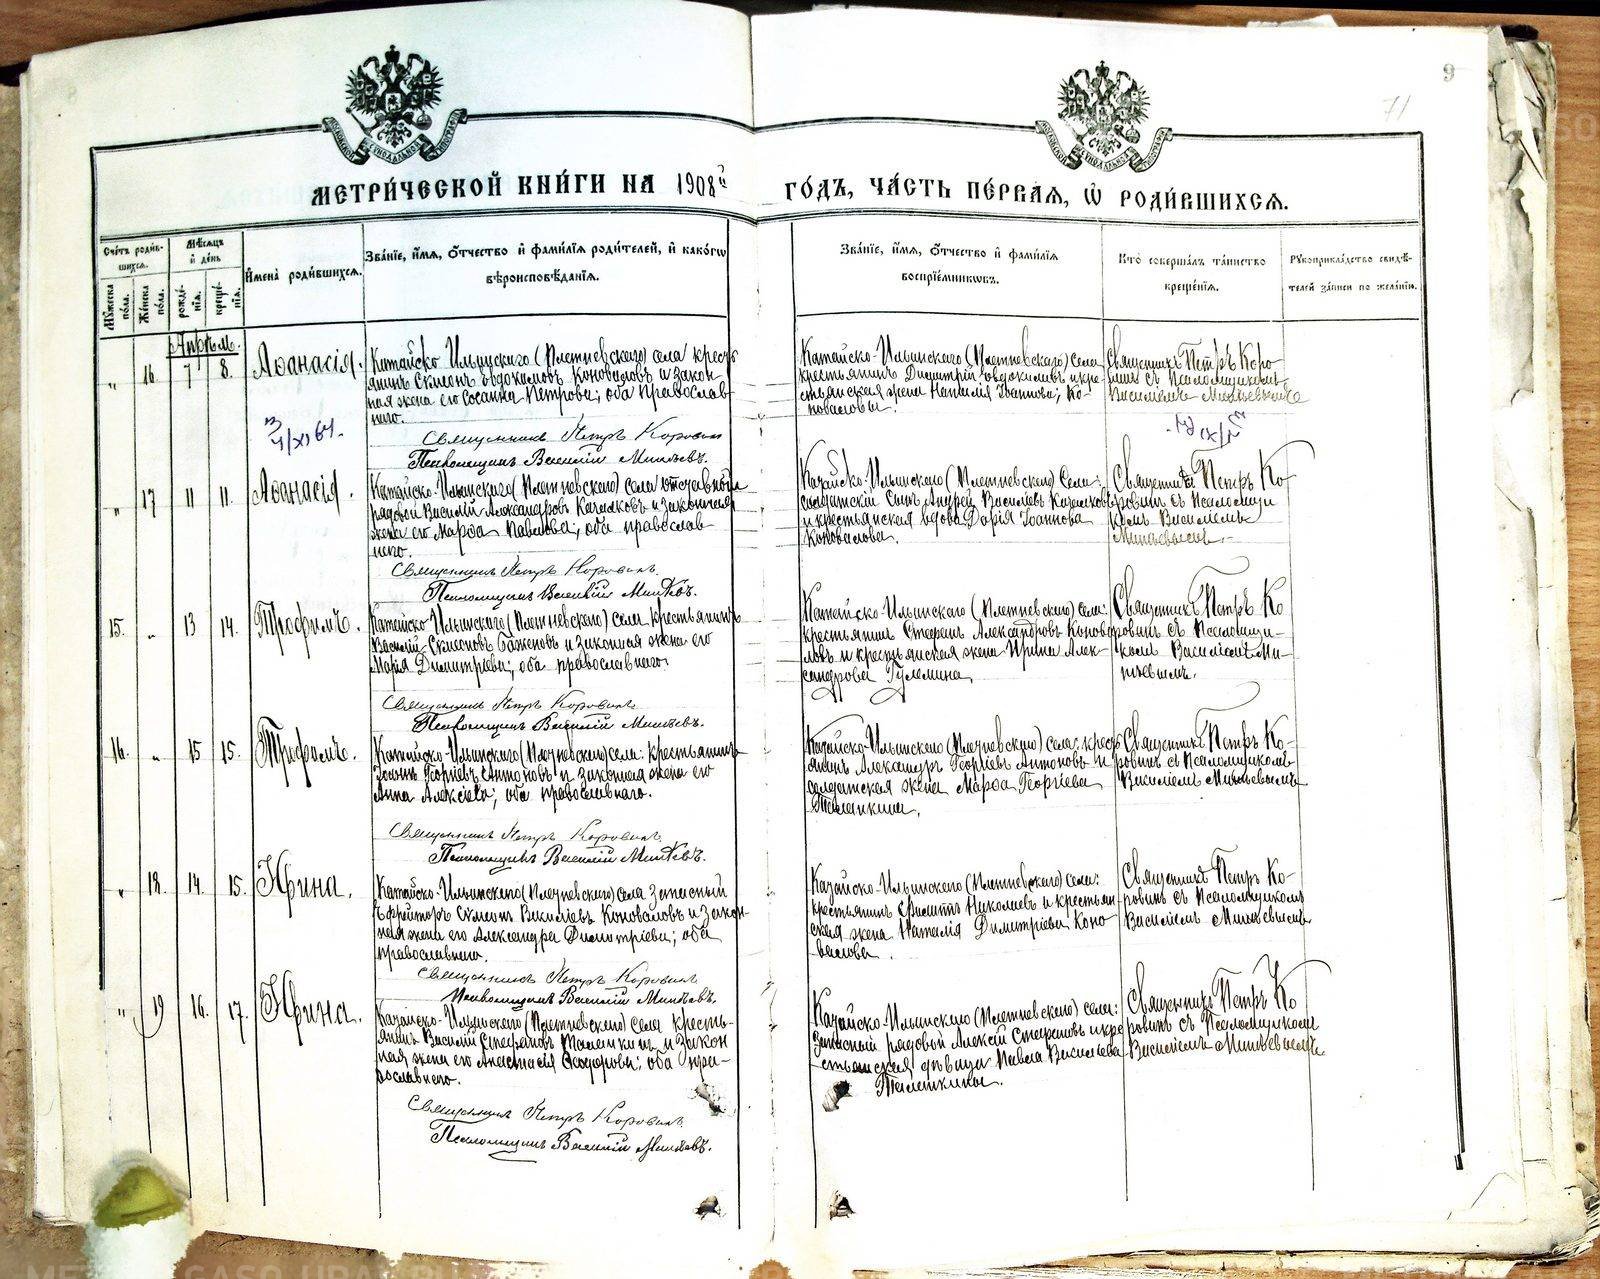 9
71
МЕТРИ́ЧЕСКОЙ КНИ́ГИ НА 1908й ГО́ДЪ, ЧА́СТЬ ПЕ́РВАЯ, Ѡ РОДИ́ВШИХСЯ.
Счетъ роди́вшихся.
Мѣсяцъ и де́нь
Мужеска по́ла.
Же́нска по́ла.
рожде́нїя.
креще́нїя.
И҆мена̀ роди́вшихся.
Зва́нїе, и҆́мя, ѻ҆́тчество и҆ фами́лїя роди́телей, и҆ како́гѡ
вѣроисповѣ́данїя.
Зва́нїе, и҆́мя, ѻ҆́тчество и҆ фами́лїя
воспрїе́мникѡвъ.
Кто̀ соверша́лъ та́инство
креще́нїя.
Рукоприкла́дство свидѣ́-
телей за́писи по жела́нїю.
Апрѣль.
„ 16. 7 8. Аѳанасія.
Катайско-Ильинскаго (Плетневскаго) села кресть-
янинъ Симеонъ Евдокимовъ Коноваловъ и закон-
ная жена его Сосанна Петрова; оба православ-
наго.
Священникъ Петръ Коровинъ
Псаломщикъ Василій Минѣевъ.
Катайско-Ильинскаго (Плетневскаго) села
крестьянинъ Димитрій Евдокимовъ и кре-
стьянская жена Наталія Іоаннова Ко-
новаловы.
Священникъ Петръ Коро-
винъ съ Псаломщикомъ
Василіемъ Минѣевымъ
„ 17 11 11. Аѳанасія.
Катайско-Ильинскаго (Плетневскаго) села отставной
рядовой Василій Александровъ Казаковъ и законная
жена его Марѳа Павлова; оба православ-
наго.
Священникъ Петръ Коровинъ.
Псаломщикъ Василій Минѣевъ.
Катайско-Ильинскаго (Плетневскаго) села:
солдатскій сынъ Андрей Васильевъ Казаковъ
и крестьянская вдова Дарія Іоаннова
Коновалова.
Священникъ Петръ Ко-
ровинъ съ Псаломщи-
комъ Василіемъ
Минѣевымъ.
15. „ 13 14. Трофимъ.
Катайско-Ильинскаго (Плетневскаго) села крестьянинъ
Василій Симеоновъ Баженовъ и законная жена его
Марія Димитріева; оба православнаго.
Священникъ Петръ Коровинъ
Псаломщикъ Василій Минѣевъ.
Катайско-Ильинскаго (Плетневскаго) села:
крестьянинъ Стефанъ Александровъ Конова-
ловъ и крестьянская жена Ирина Алек-
сандрова
Священникъ Петръ Ко-
ровинъ съ Псаломщи-
комъ Василіемъ Ми-
нѣевымъ.
16. „ 15 15. Трофимъ.
Катайско-Ильинскаго (Плетневскаго) села: крестьянинъ
Іоаннъ Георгіевъ Антоновъ и законная жена его
Анна Алексіева; оба православнаго.
Священникъ Петръ Коровинъ
Псаломщикъ Василій Минѣевъ.
Катайско-Ильинскаго (Плетневскаго) села: кресть-
янинъ Александръ Георгіевъ Антоновъ и
солдатская жена Марѳа Георгіева
Священникъ Петръ Ко-
ровинъ съ Псаломщикомъ
Василіемъ Минѣевымъ
„ 18. 14. 15. Ирина.
Катайско-Ильинскаго (Плетневскаго) села запасный
ефрейторъ Симеонъ Василіевъ Коноваловъ и закон-
ная жена его Александра Димитріева; оба
православнаго.
Священникъ Петръ Коровинъ
Псаломщикъ Василій Минѣевъ.
Катайско-Ильинскаго (Плетневскаго) села:
крестьянинъ Филиппъ Николаевъ и крестьян-
ская жена Наталія Димитріева Коно-
валова.
Священникъ Петръ Ко-
ровинъ съ Псаломщикомъ
Василіемъ Минѣевымъ
„ 19 16. 17. Ирина.
Катайско-Ильинскаго (Плетневскаго) села кресть-
янинъ Василій Стефановъ и закон-
ная жена его Анастасія Ѳеодорова; оба пра-
вославнаго.
Священникъ Петръ Коровинъ
Псаломщикъ Василій Минѣевъ.
Катайско-Ильинскаго (Плетневскаго) села:
Запасный рядовой Алексій Стефановъ и кре-
стьянская дѣвица Павла Василіева
Священникъ Петръ Ко-
ровинъ съ Псаломщикомъ
Василіемъ Минѣевымъ